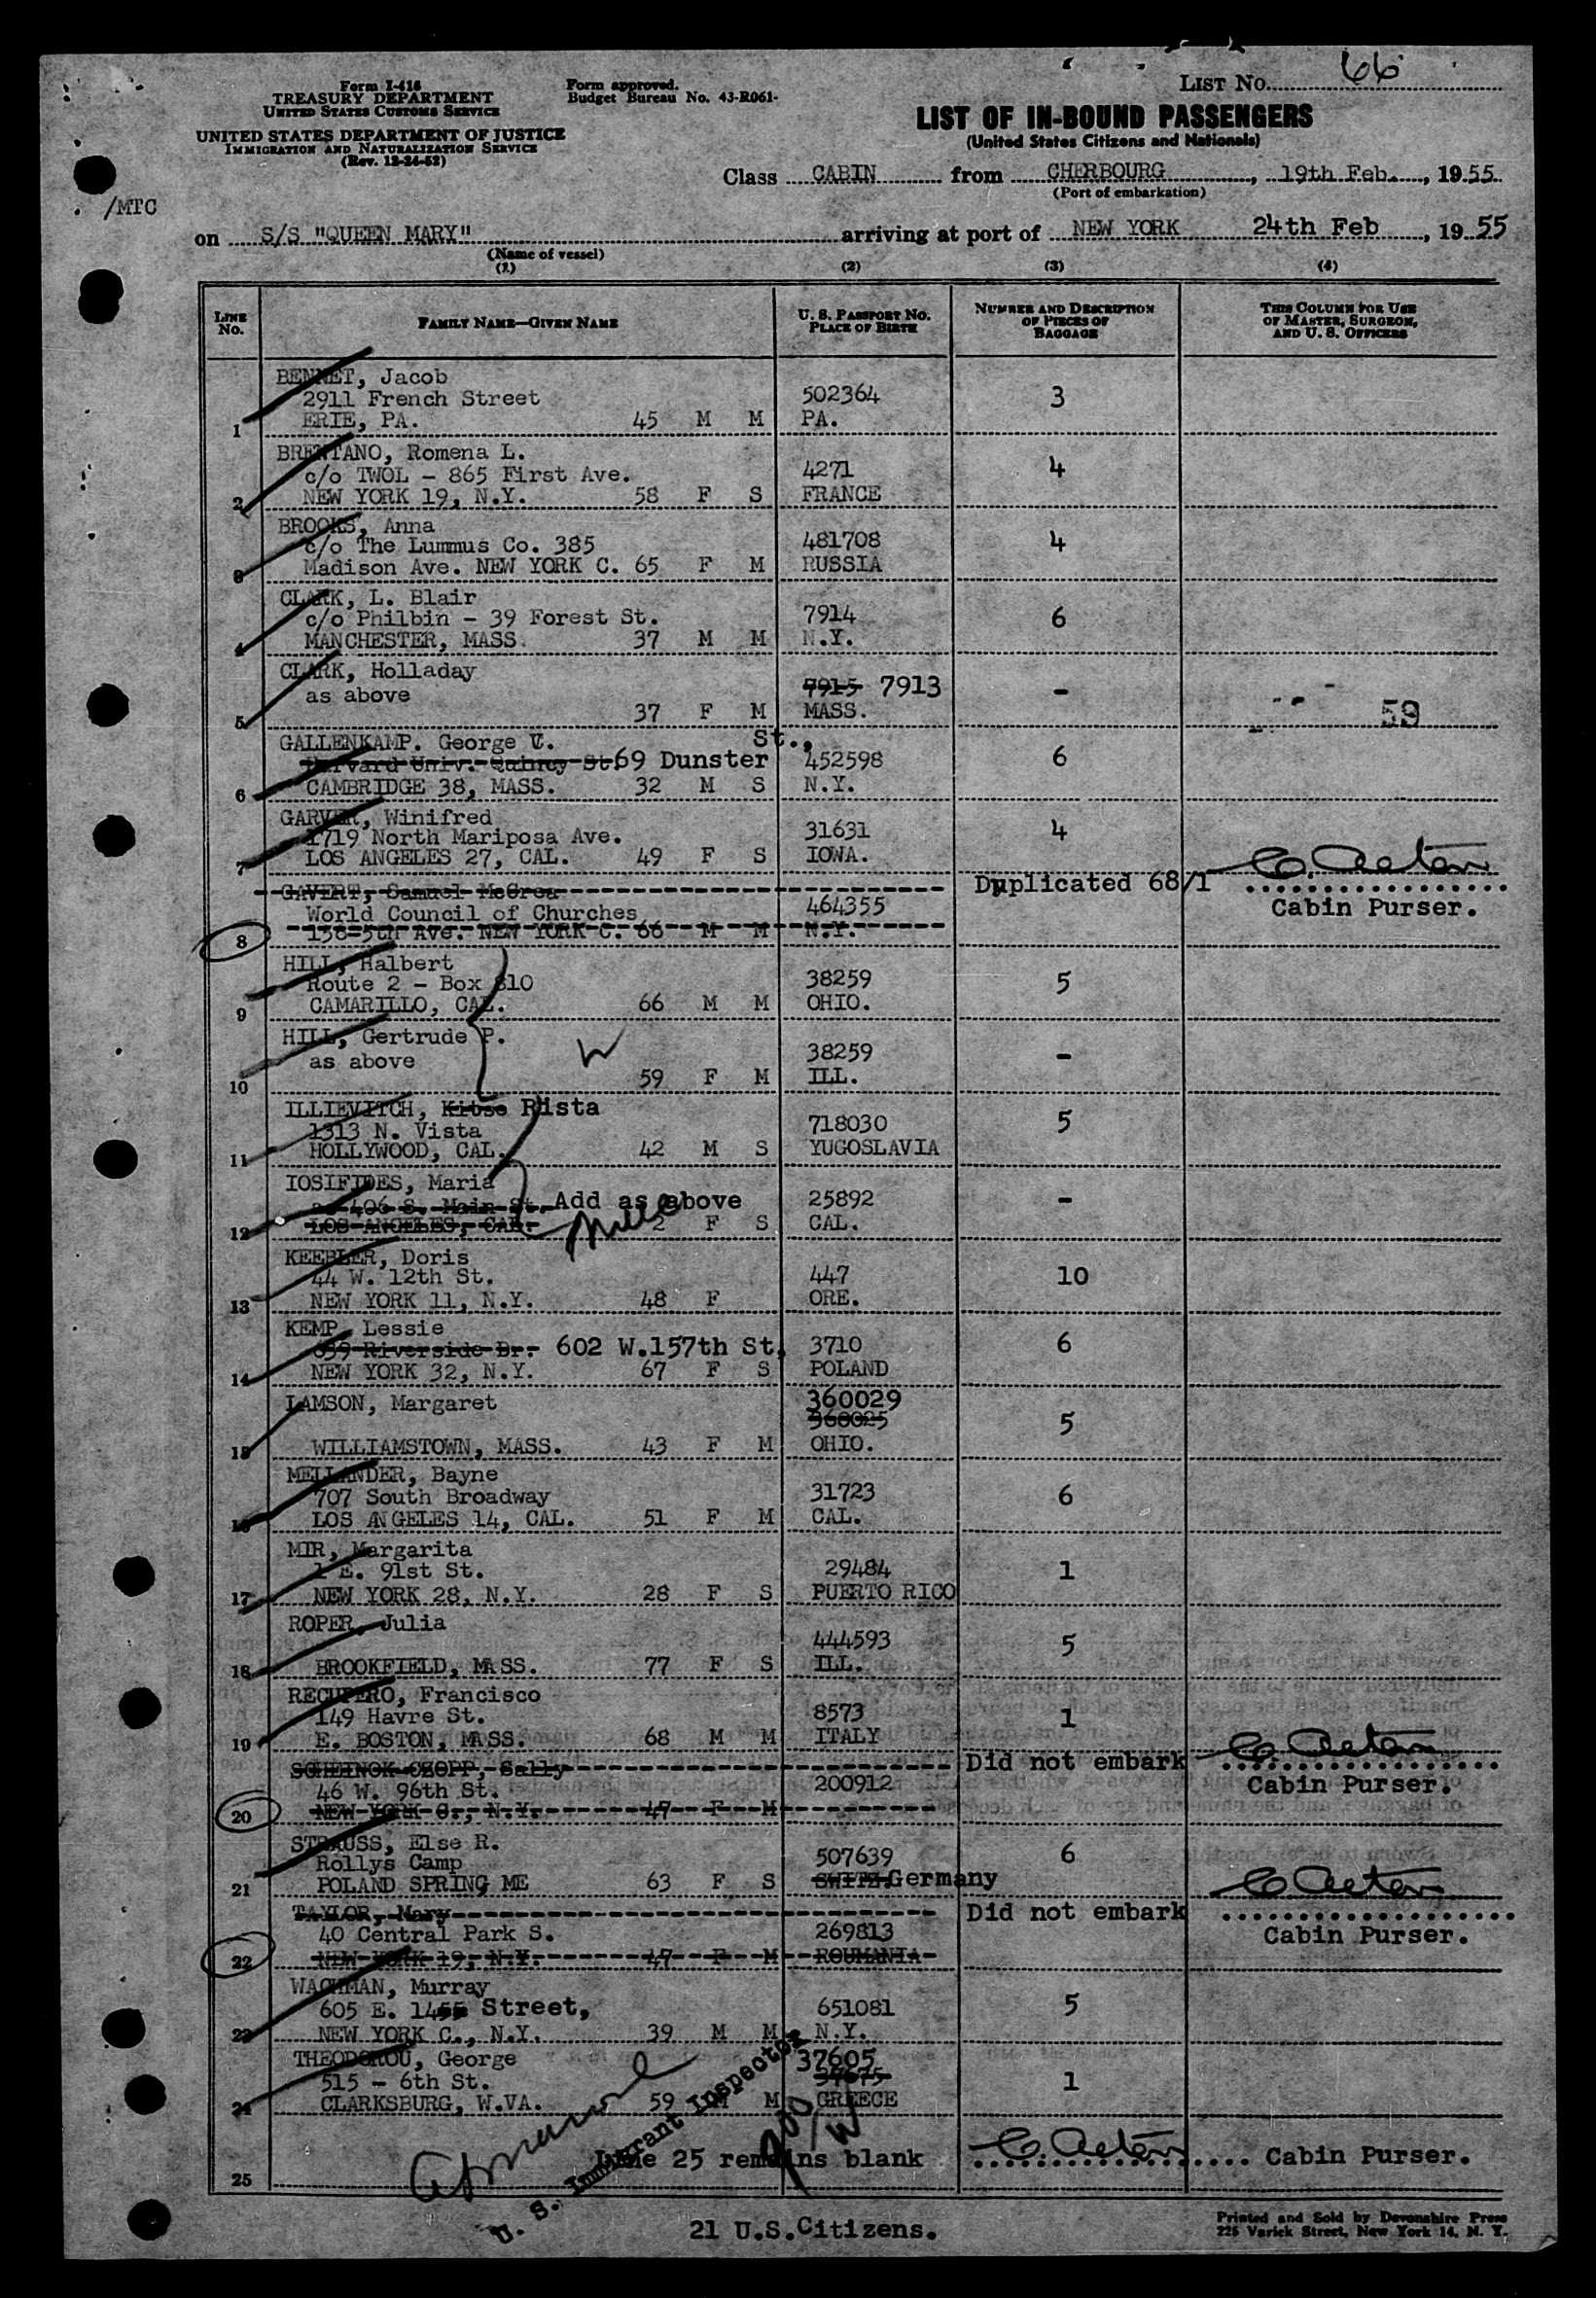 LIST NO. 66
Form I-418
TREASURY DEPARTMENT
UNITED STATES CUSTOMS SERVICE
UNITED STATES DEPARTMENT OF JUSTICE
IMMIGRATION AND NATURALIZATION SERVICE
(Rev. 12-24-52)
Form approved.
Budget Bureau No. 43-R061-
LIST OF IN-BOUND PASSENGERS
(United States Citizens and Nationals)
Class CABIN from CHERBOURG, 19th Feb., 1955
(Port of embarkation)
/MTC
on S/S "QUEEN MARY" arriving at port of NEW YORK 24th Feb, 1955
(Name of vessel)
(1) (2) (3) (4)
LINE NO.
FAMILY NAME—GIVEN NAME
U. S. PASSPORT NO.
PLACE OF BIRTH
NUMBER AND DESCRIPTION
OF PIECES OF
BAGGAGE
THIS COLUMN FOR USE
OF MASTER, SURGEON,
AND U. S. OFFICERS
BENNET, Jacob
2911 French Street 502364 3
1 ERIE, PA. 45 M M PA.
BRENTANO, Romena L.
c/o TWOL - 865 First Ave. 4271 4
2 NEW YORK 19, N.Y. 58 F S FRANCE
BROOKS, Anna
c/o The Lummus Co. 385 481708 4
3 Madison Ave. NEW YORK C. 65 F M RUSSIA
CLARK, L. Blair
c/o Philbin - 39 Forest St. 7914 6
4 MANCHESTER, MASS. 37 M M N.Y.
CLARK, Holladay
as above 7915 7913 -
5 37 F M MASS. 59
GALLENKAMP. George U. St.,
Harvard Univ. Quincy St. 69 Dunster 452598 6
6 CAMBRIDGE 38, MASS. 32 M S N.Y.
GARVER, Winifred
1719 North Mariposa Ave. 31631 4
7 LOS ANGELES 27, CAL. 49 F S IOWA.
GAVERT, Samuel McCrea Duplicated 68/1
World Council of Churches 464355 Cabin Purser.
8 156-5th Ave. NEW YORK C. 66 M M N.Y.
HILL, Halbert
Route 2 - Box 810 38259 5
9 CAMARILLO, CAL. 66 M M OHIO.
HILL, Gertrude P.
as above 38259 -
10 59 F M ILL.
ILLIEVITCH, Kitso Rista
1313 N. Vista 718030 5
11 HOLLYWOOD, CAL. 42 M S YUGOSLAVIA
IOSIFIDES, Maria
406 S. Main St. Add as above 25892 -
12 LOS ANGELES, CAL. 2 F S CAL.
KEEBLER, Doris
44 W. 12th St. 447 10
13 NEW YORK 11, N.Y. 48 F ORE.
KEMP, Lessie
659 Riverside Dr. 602 W.157th St, 3710 6
14 NEW YORK 32, N.Y. 67 F S POLAND
LAMSON, Margaret 360029
360025 5
15 WILLIAMSTOWN, MASS. 43 F M OHIO.
MELLANDER, Bayne
707 South Broadway 31723 6
16 LOS ANGELES 14, CAL. 51 F M CAL.
MIR, Margarita
1 E. 91st St. 29484 1
17 NEW YORK 28, N.Y. 28 F S PUERTO RICO
ROPER, Julia
444593 5
18 BROOKFIELD, MASS. 77 F S ILL.
RECUPERO, Francisco
149 Havre St. 8573 1
19 E. BOSTON, MASS. 68 M M ITALY
SCHEINOK-CZOPP, Sally Did not embark
46 W. 96th St. 200912 Cabin Purser.
20 NEW YORK C., N.Y. 47 F M
STRAUSS, Else R.
Rollys Camp 507639 6
21 POLAND SPRING ME 63 F S SWITZ. Germany
TAYLOR, Mary Did not embark
40 Central Park S. 269813 Cabin Purser.
22 NEW YORK 19, N.Y. 47 F M ROUMANIA
WACHMAN, Murray
605 E. 1455 Street, 651081 5
23 NEW YORK C., N.Y. 39 M M N.Y.
THEODOROU, George 37605
515 - 6th St. 37675 1
24 CLARKSBURG, W.VA. 59 M M GREECE
25 Line 25 remains blank Cabin Purser.
U. S. Immigrant Inspector
21 U.S.Citizens.
Printed and Sold by Devonshire Press
225 Varick Street, New York 14, N. Y.